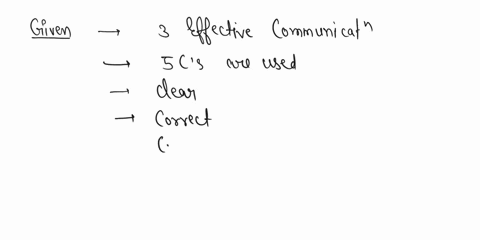 Given → 3 Effective Communicatⁿ
→ 5C's are used
→ clear
→ Correct
C